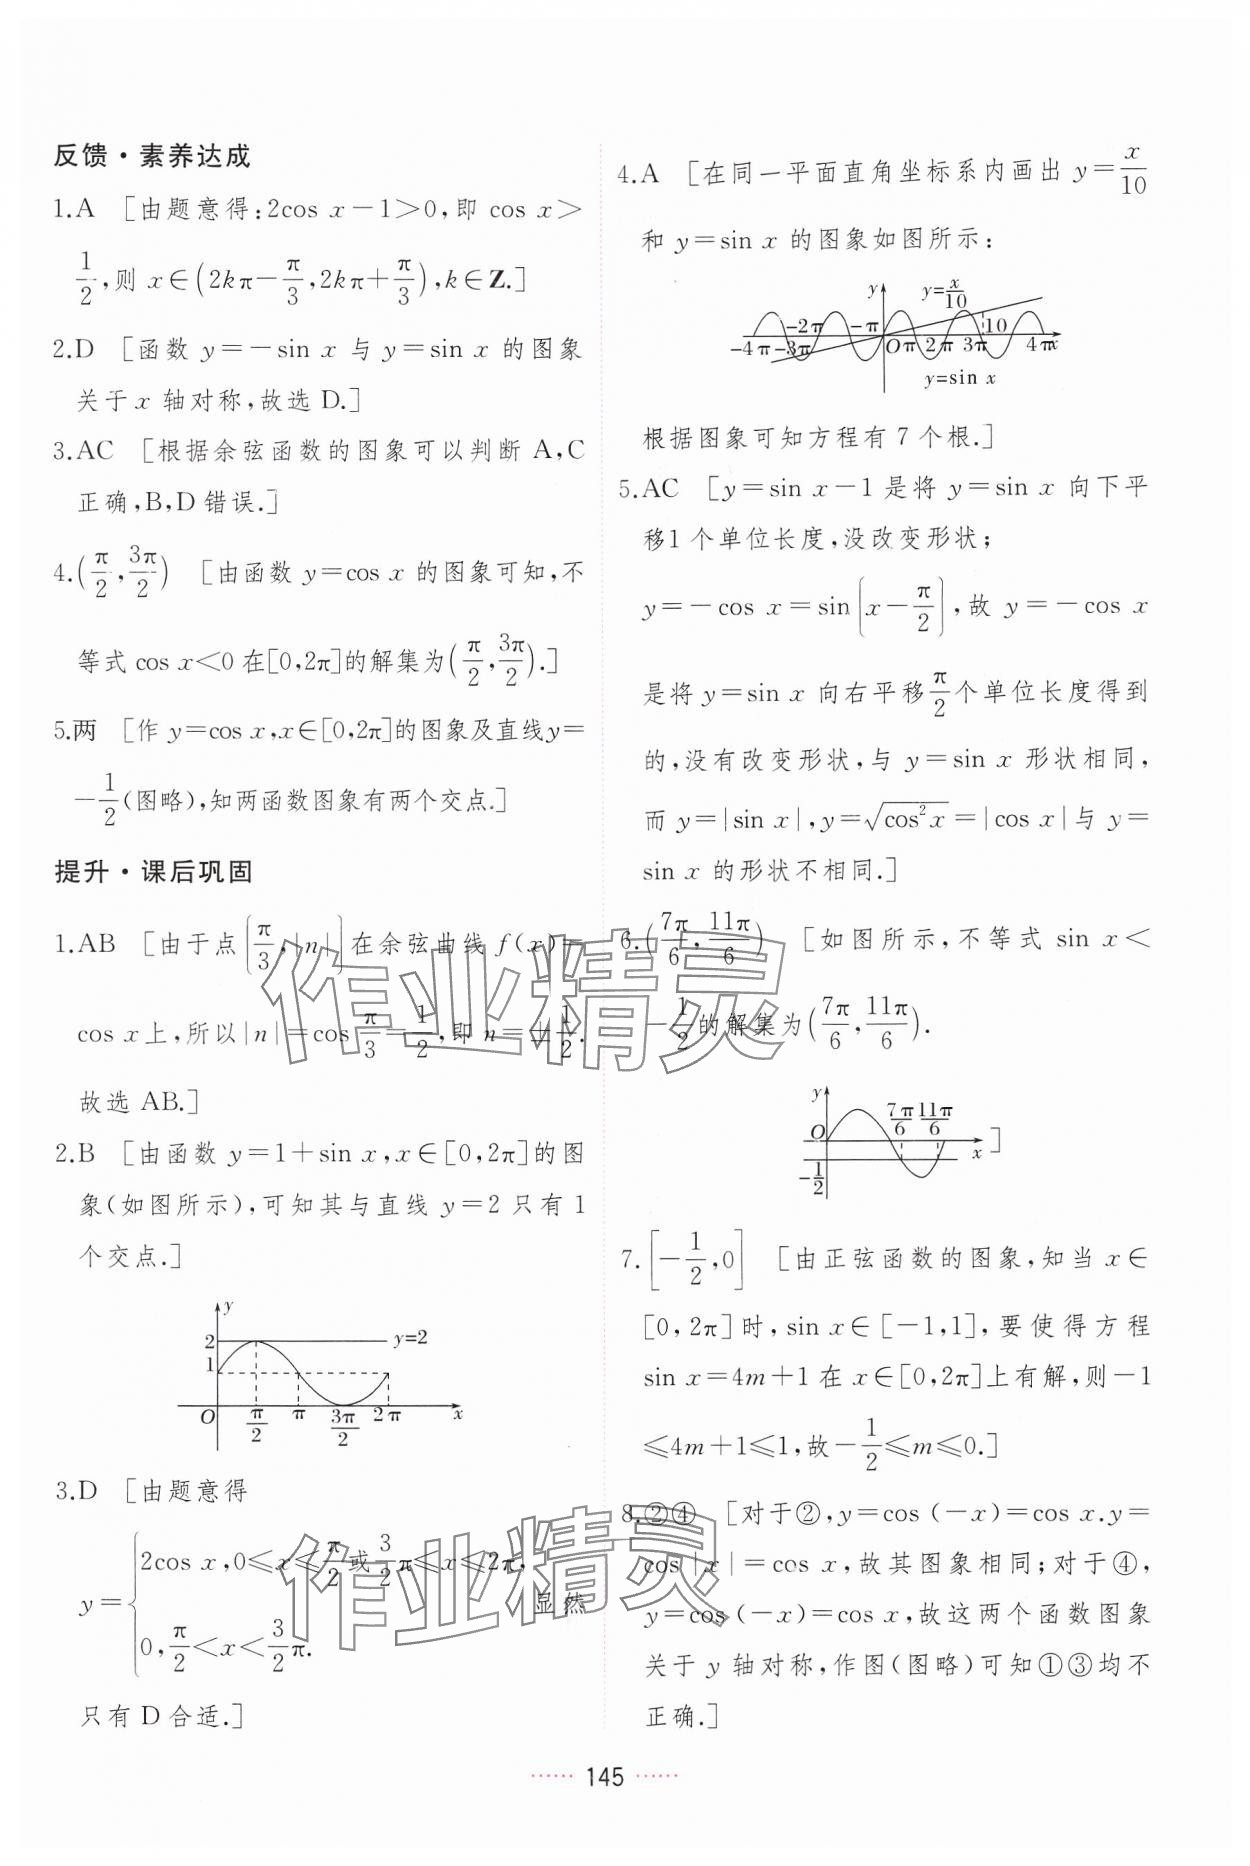 反馈·素养达成
1.A [由题意得:2cos x−1>0,即 cos x>
1/2,则 x∈(2kπ−π/3,2kπ+π/3),k∈Z.]
2.D [函数 y=−sin x 与 y=sin x 的图象
关于 x 轴对称,故选 D.]
3.AC [根据余弦函数的图象可以判断 A,C
正确,B,D 错误.]
4.(π/2,3π/2) [由函数 y=cos x 的图象可知,不
等式 cos x<0 在[0,2π]的解集为(π/2,3π/2).]
5.两 [作 y=cos x,x∈[0,2π]的图象及直线y=
−1/2(图略),知两函数图象有两个交点.]
提升·课后巩固
1.AB [由于点(π/3,|n|)在余弦曲线 f(x)=
cos x上,所以|n|=cos π/3=1/2,即 n=±1/2.
故选 AB.]
2.B [由函数 y=1+sin x,x∈[0,2π]的图
象(如图所示),可知其与直线 y=2 只有 1
个交点.]
y
2
y=2
1
O
π/2
π
3π/2
2π
x
3.D [由题意得
y={2cos x,0≤x≤π/2或3/2π≤x≤2π,
0,π/2<x<3/2π.
显然
只有 D 合适.]
4.A [在同一平面直角坐标系内画出 y=x/10
和 y=sin x 的图象如图所示:
y
y=x/10
−2π
−π
10
−4π
−3π
O
π
2π
3π
4π
x
y=sin x
根据图象可知方程有 7 个根.]
5.AC [y=sin x−1 是将 y=sin x 向下平
移1 个单位长度,没改变形状;
y=−cos x=sin(x−π/2),故 y=−cos x
是将 y=sin x 向右平移π/2个单位长度得到
的,没有改变形状,与 y=sin x 形状相同,
而 y=|sin x|,y=√cos²x=|cos x|与 y=
sin x 的形状不相同.]
6.(7π/6,11π/6) [如图所示,不等式 sin x<
−1/2的解集为(7π/6,11π/6).
y
7π/6
11π/6
O
x
]
−1/2
7.[−1/2,0] [由正弦函数的图象,知当 x∈
[0,2π]时,sin x∈[−1,1],要使得方程
sin x=4m+1 在 x∈[0,2π]上有解,则−1
≤4m+1≤1,故−1/2≤m≤0.]
8.②④ [对于②,y=cos (−x)=cos x.y=
cos |x|=cos x,故其图象相同;对于④,
y=cos (−x)=cos x,故这两个函数图象
关于 y 轴对称,作图(图略)可知①③均不
正确.]
作业精灵
作业精灵
······ 145 ······